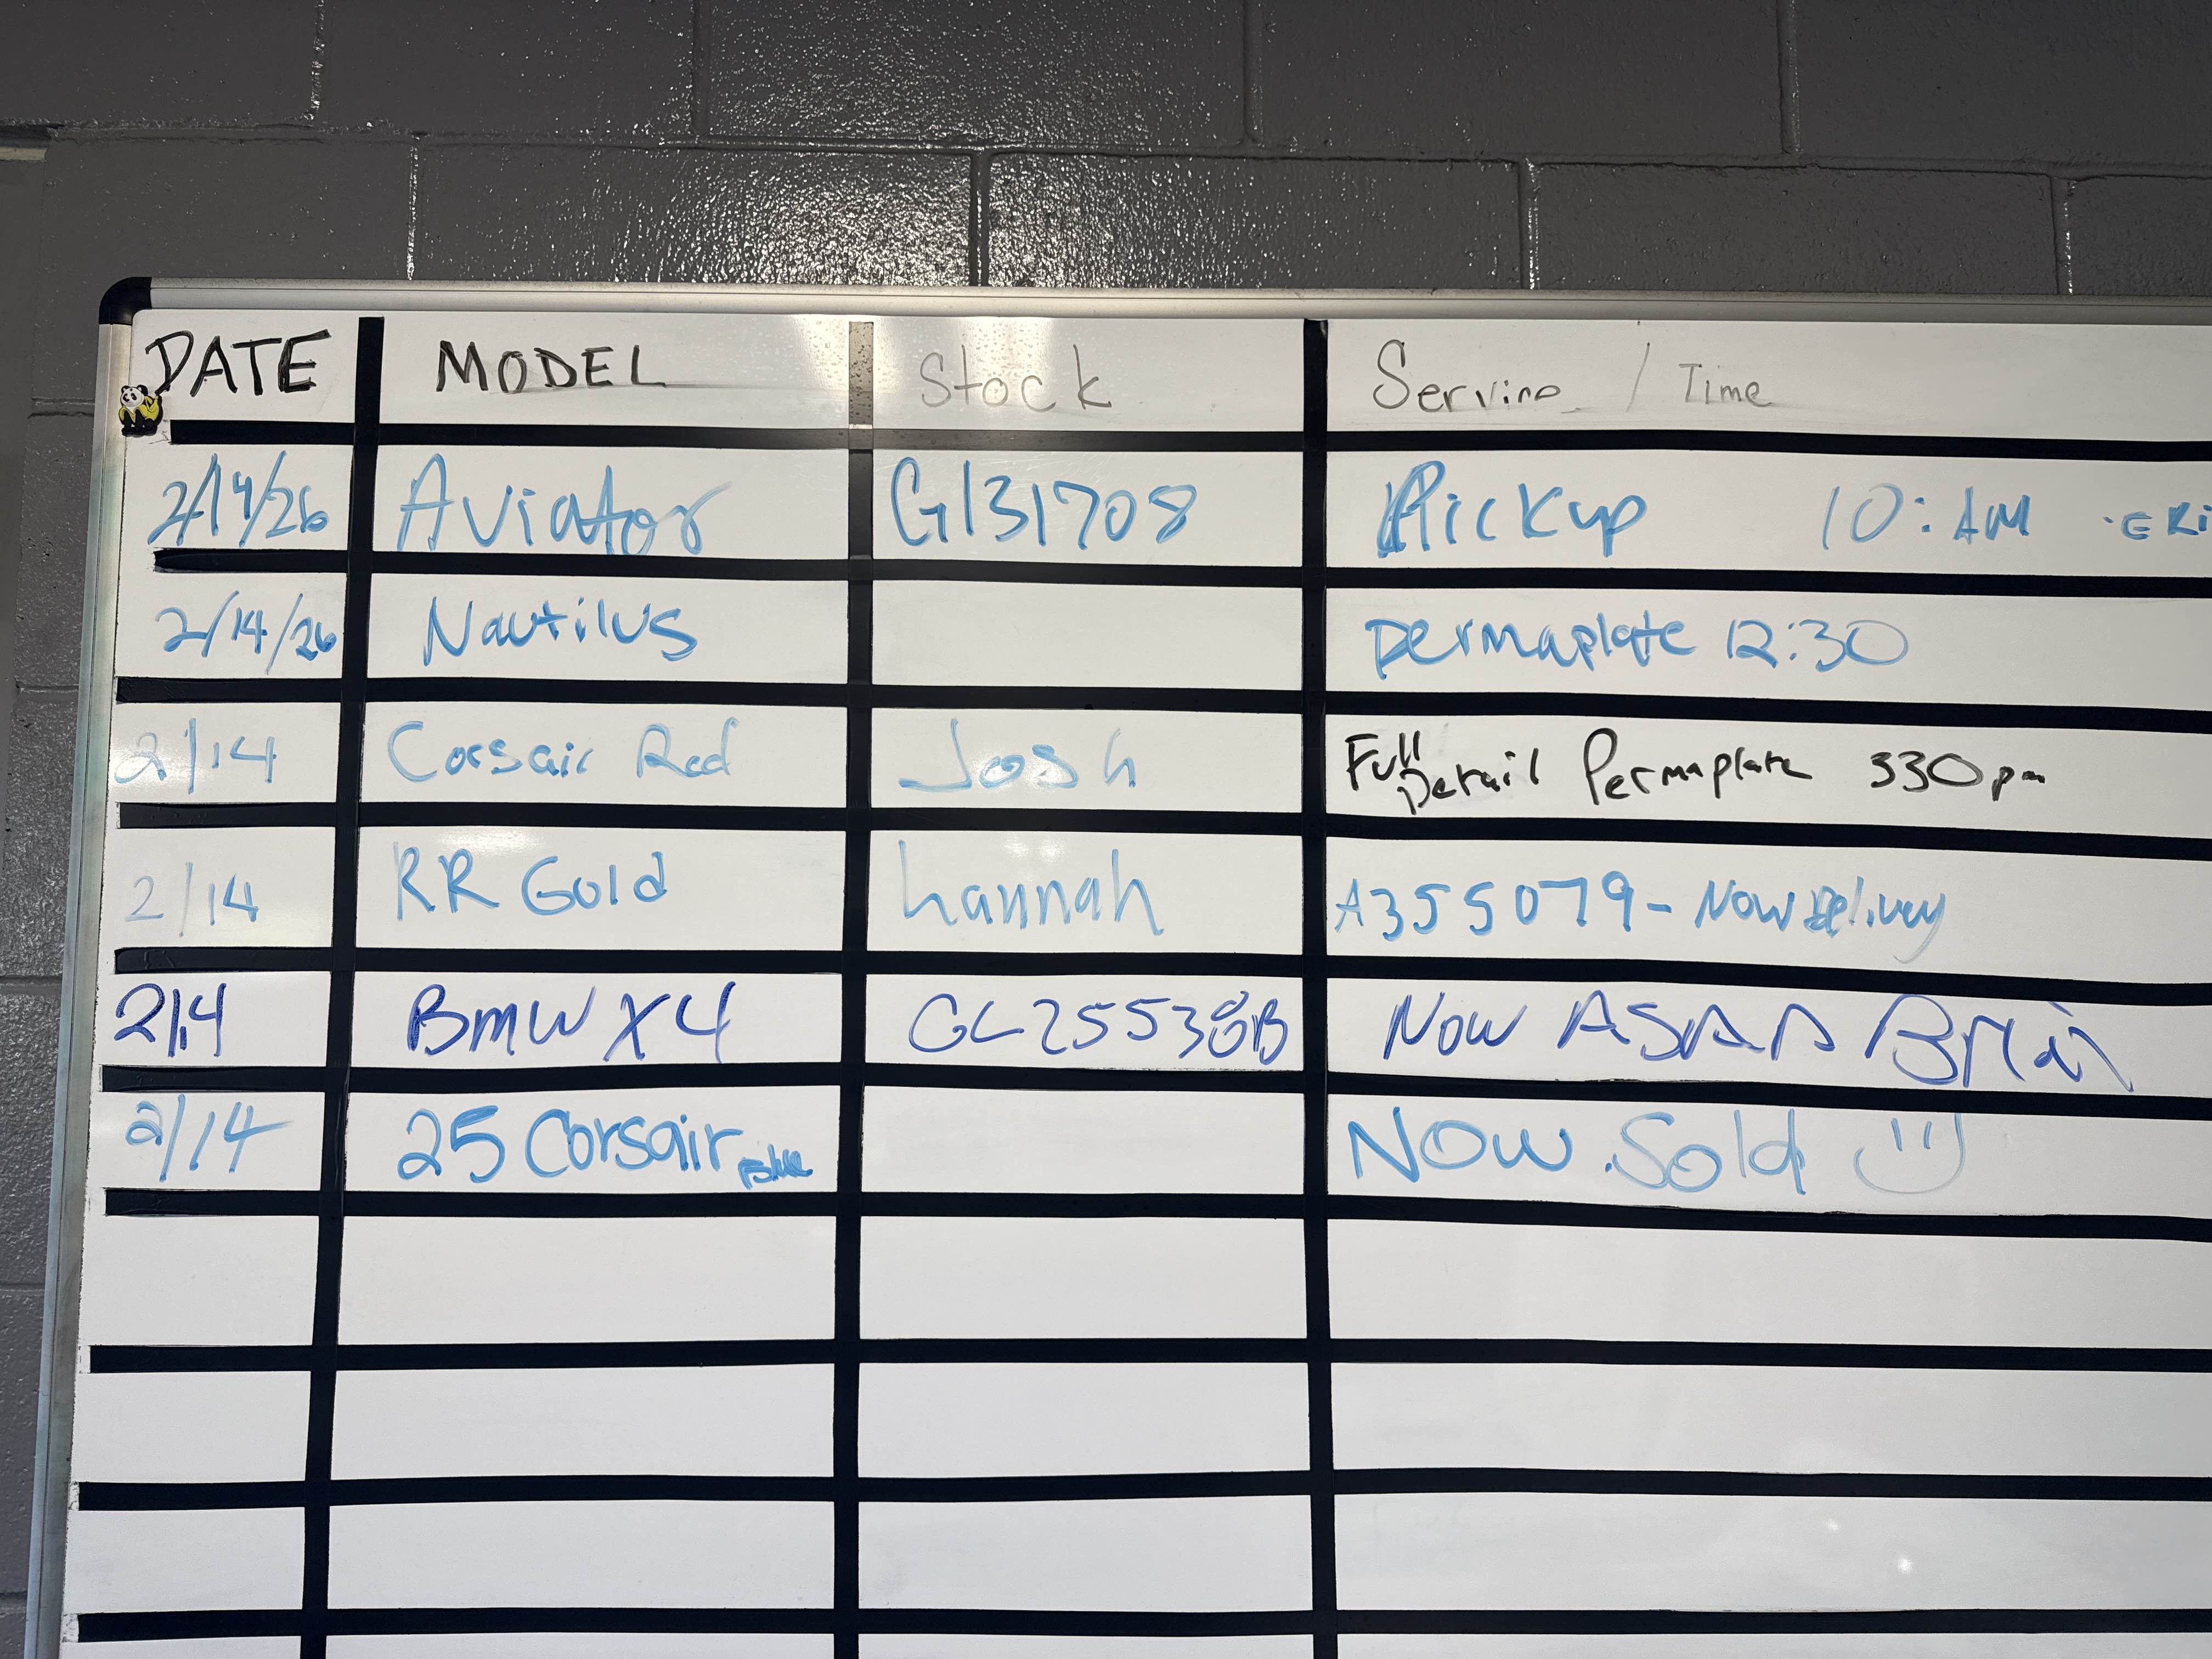 DATE MODEL Stock Service / Time
2/14/26 Aviator G131708 Pickup 10:AM ERi
2/14/26 Nautilus Permaplate 12:30
2/14 Corsair Red Josh Full Detail Permaplate 330pm
2/14 RR Gold hannah A355079 - Now Delivery
2/14 BMW X4 GL25538B Now ASAP Brian
2/14 25 Corsair Now Sold